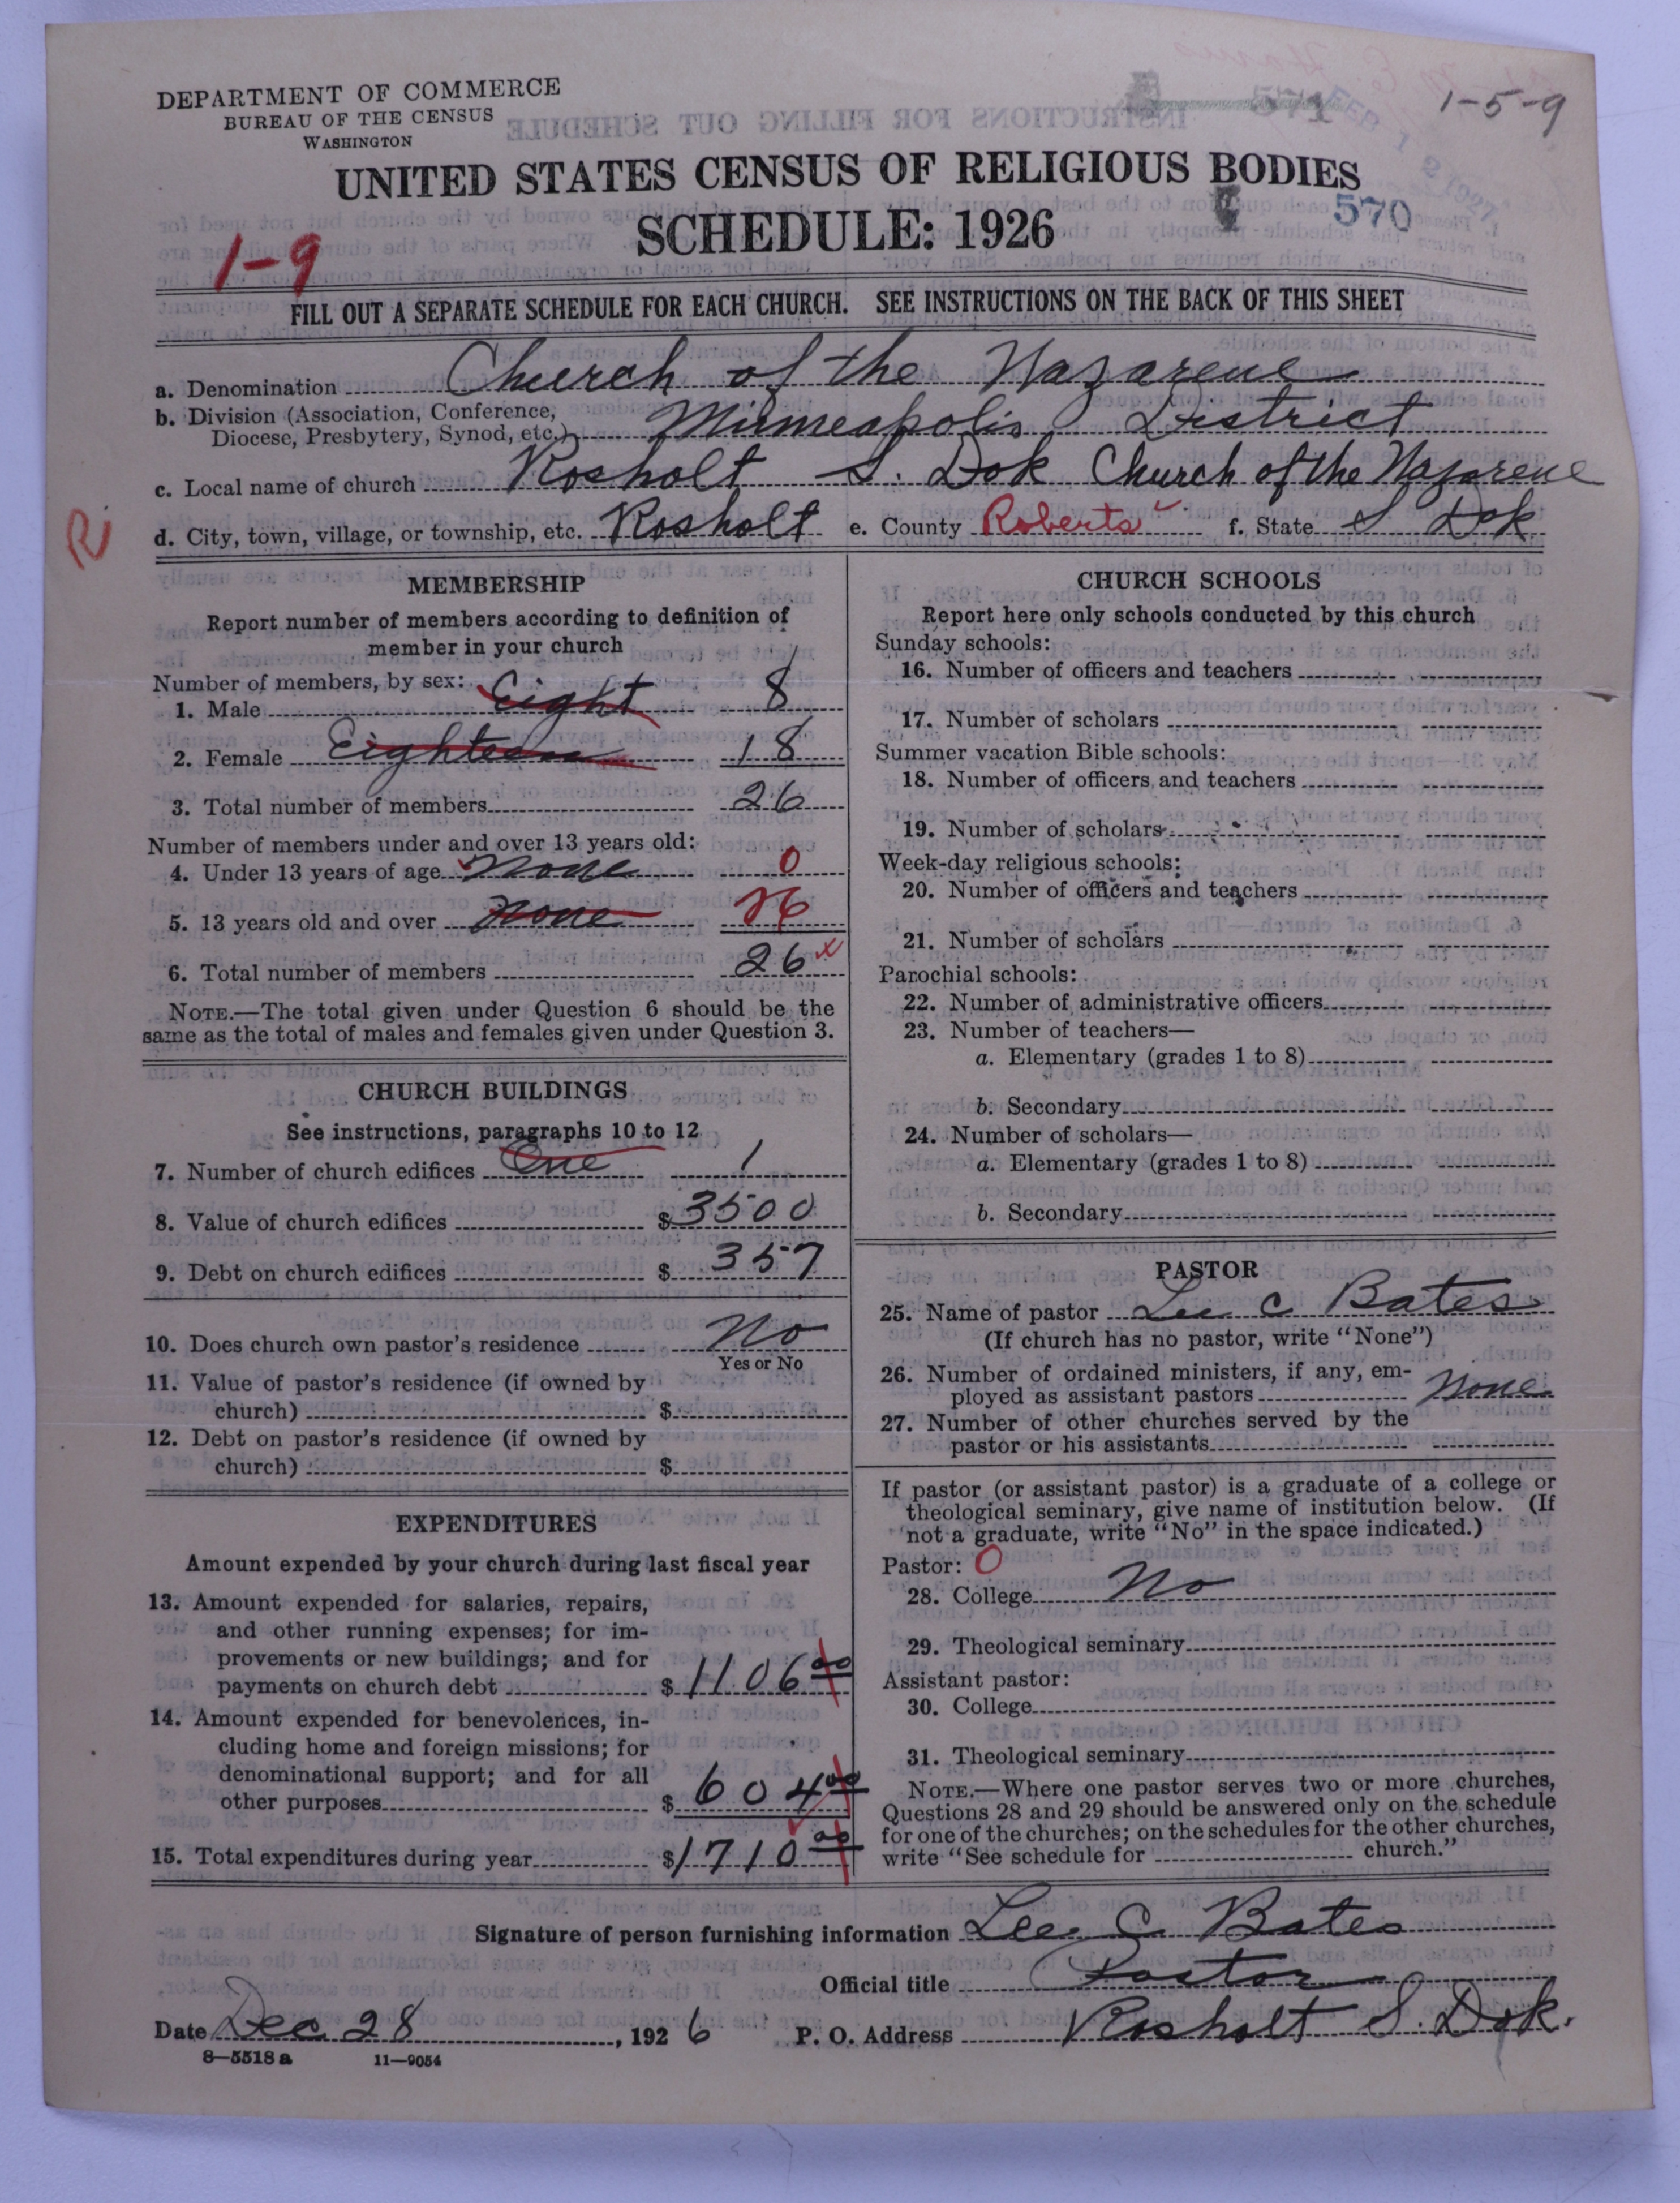 DEPARTMENT OF COMMERCE
BUREAU OF THE CENSUS
WASHINGTON
1-5-9
UNITED STATES CENSUS OF RELIGIOUS BODIES
SCHEDULE: 1926
570
1-9
FILL OUT A SEPARATE SCHEDULE FOR EACH CHURCH. SEE INSTRUCTIONS ON THE BACK OF THIS SHEET
a. Denomination Church of the Nazarene
b. Division (Association, Conference, Diocese, Presbytery, Synod, etc.) Minneapolis District
c. Local name of church Rosholt S. Dok Church of the Nazarene
R
d. City, town, village, or township, etc. Rosholt e. County Roberts f. State S Dok
MEMBERSHIP
Report number of members according to definition of
member in your church
Number of members, by sex:
1. Male Eight 8
2. Female Eighteen 18
3. Total number of members 26
Number of members under and over 13 years old:
4. Under 13 years of age None 0
5. 13 years old and over None 26
6. Total number of members 26 x
NOTE.—The total given under Question 6 should be the
same as the total of males and females given under Question 3.
CHURCH BUILDINGS
See instructions, paragraphs 10 to 12
7. Number of church edifices One 1
8. Value of church edifices $ 3500
9. Debt on church edifices $ 357
10. Does church own pastor's residence No
Yes or No
11. Value of pastor's residence (if owned by
church) $
12. Debt on pastor's residence (if owned by
church) $
EXPENDITURES
Amount expended by your church during last fiscal year
13. Amount expended for salaries, repairs,
and other running expenses; for im-
provements or new buildings; and for
payments on church debt $ 1106 00
14. Amount expended for benevolences, in-
cluding home and foreign missions; for
denominational support; and for all
other purposes $ 604 00
15. Total expenditures during year $ 1710 00
CHURCH SCHOOLS
Report here only schools conducted by this church
Sunday schools:
16. Number of officers and teachers
17. Number of scholars
Summer vacation Bible schools:
18. Number of officers and teachers
19. Number of scholars
Week-day religious schools:
20. Number of officers and teachers
21. Number of scholars
Parochial schools:
22. Number of administrative officers
23. Number of teachers—
a. Elementary (grades 1 to 8)
b. Secondary
24. Number of scholars—
a. Elementary (grades 1 to 8)
b. Secondary
PASTOR
25. Name of pastor Lee C Bates
(If church has no pastor, write "None")
26. Number of ordained ministers, if any, em-
ployed as assistant pastors None
27. Number of other churches served by the
pastor or his assistants
If pastor (or assistant pastor) is a graduate of a college or
theological seminary, give name of institution below. (If
not a graduate, write "No" in the space indicated.)
Pastor: 0
28. College No
29. Theological seminary
Assistant pastor:
30. College
31. Theological seminary
NOTE.—Where one pastor serves two or more churches,
Questions 28 and 29 should be answered only on the schedule
for one of the churches; on the schedules for the other churches,
write "See schedule for church."
Signature of person furnishing information Lee C. Bates
Official title Pastor
Date Dec 28, 1926 P. O. Address Rosholt S. Dok.
8-5518 a 11-9054